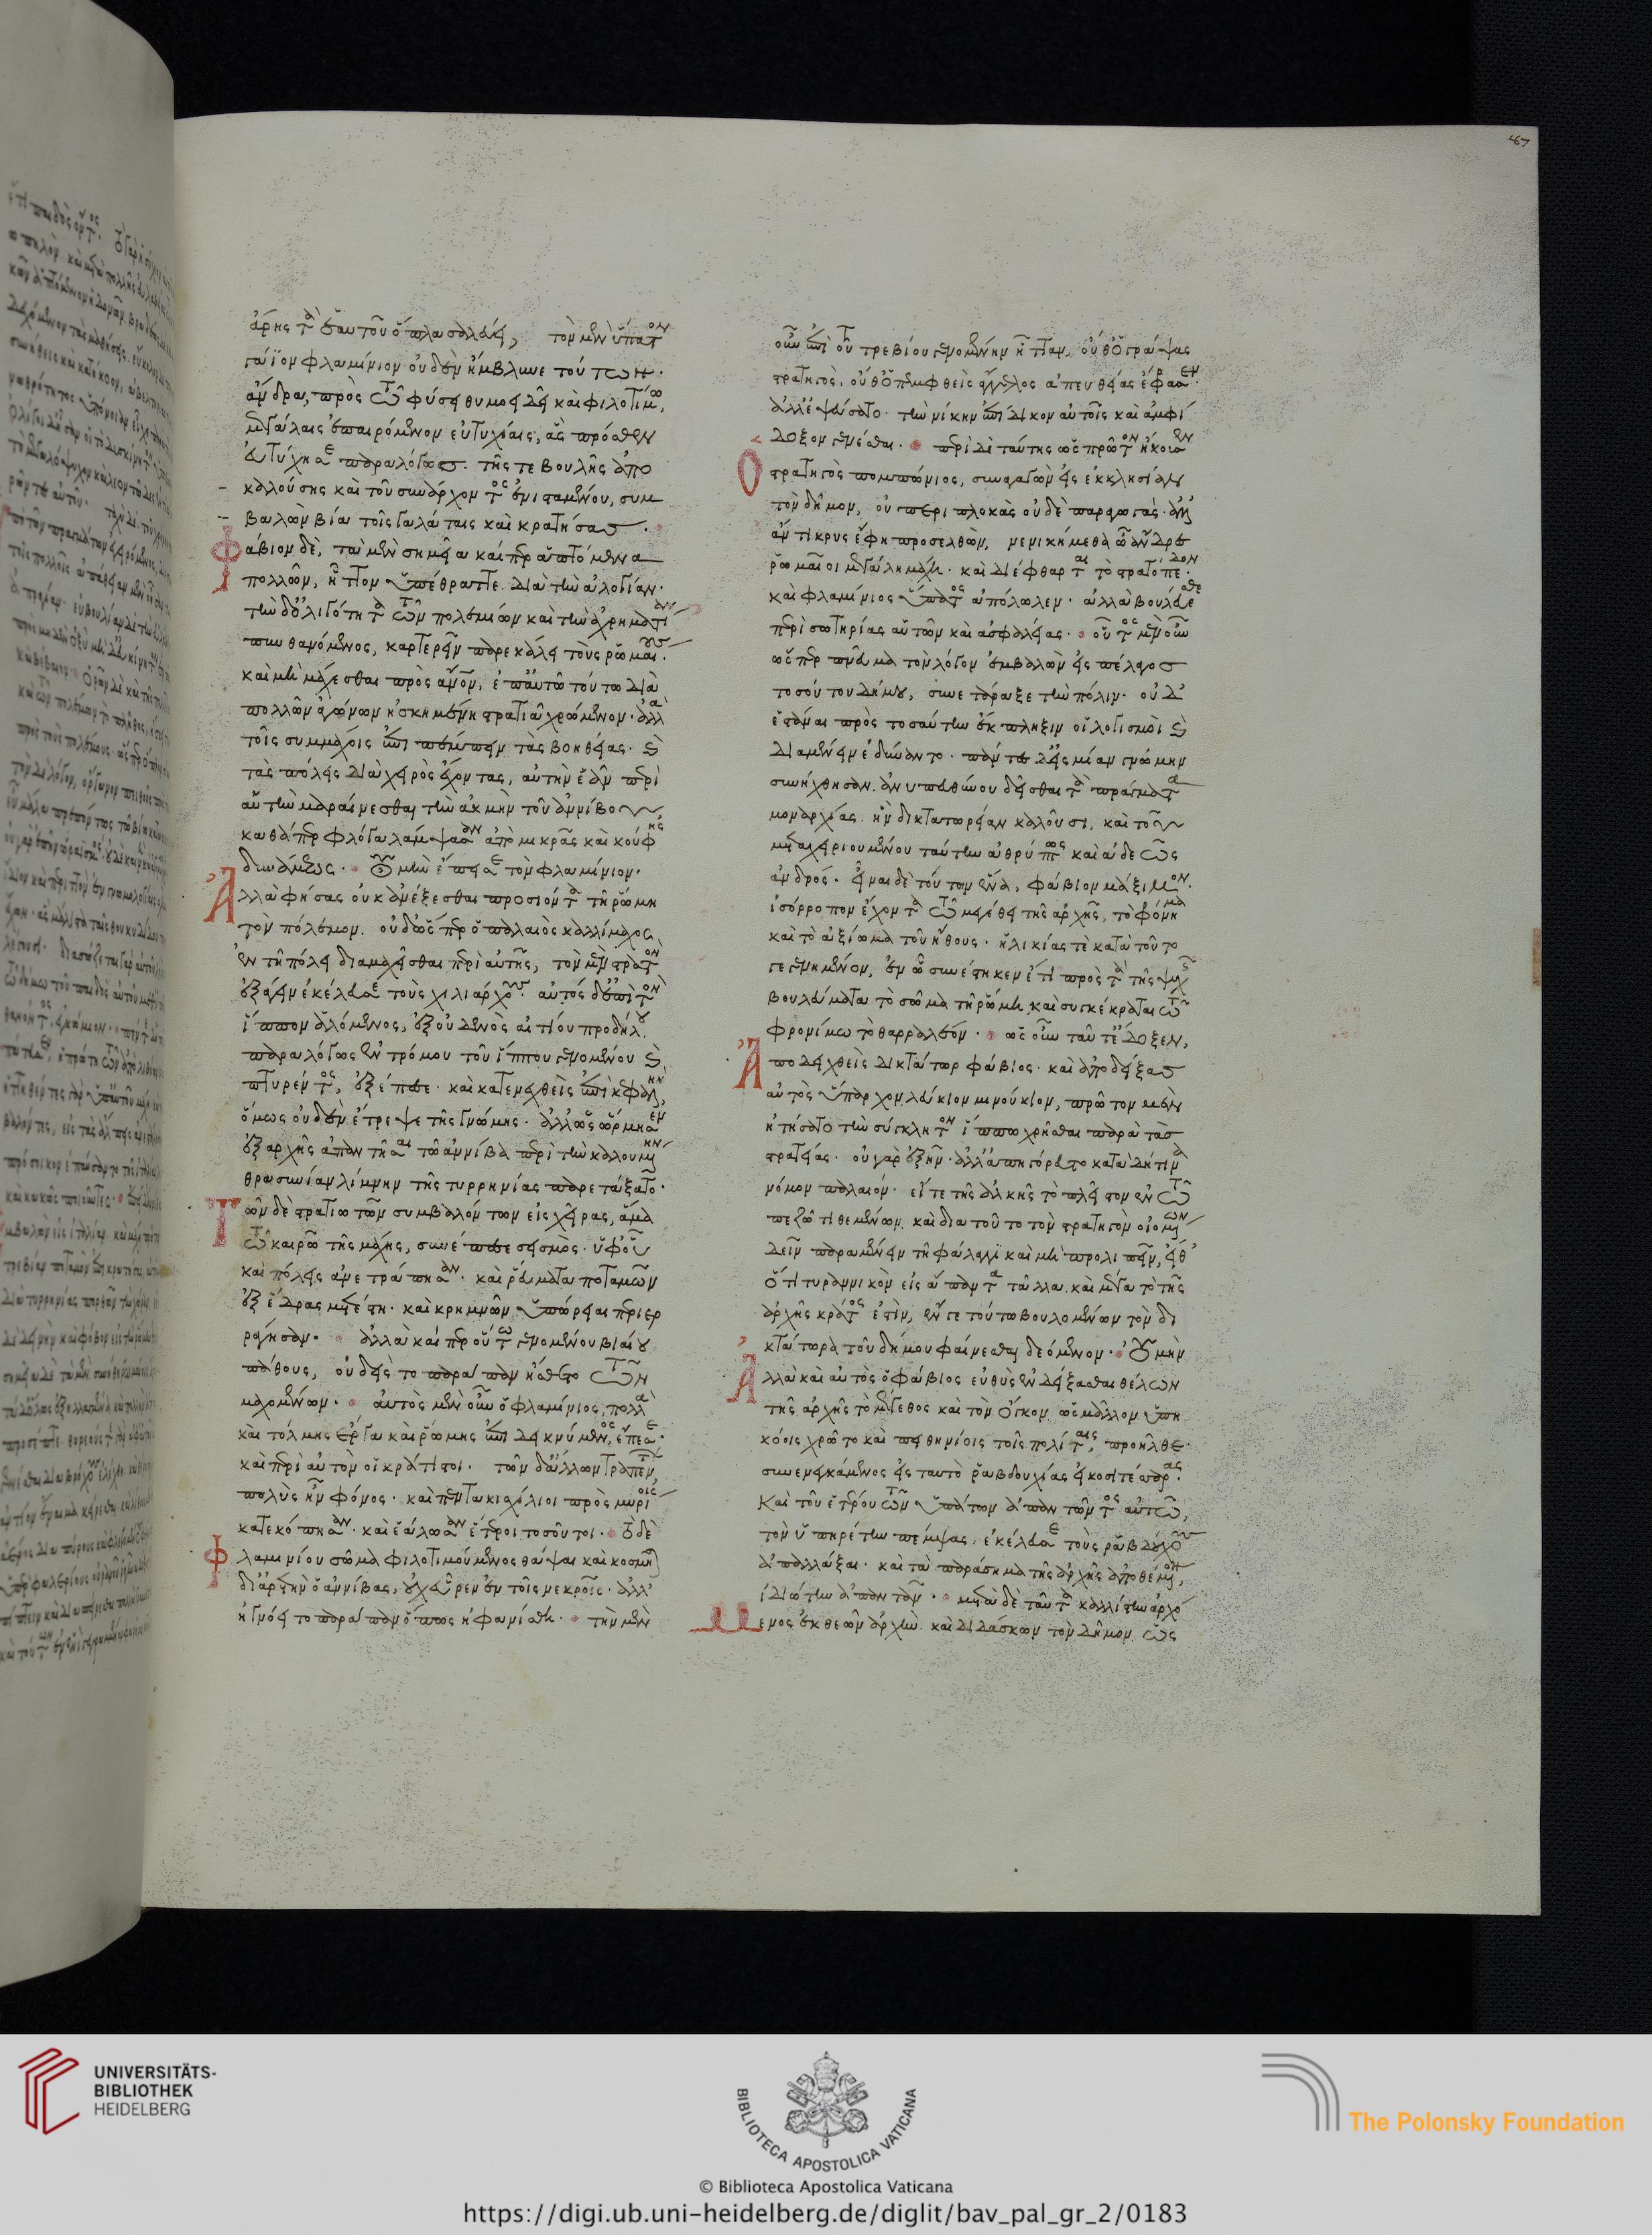 ἄρης τὰ ἑαυτοῦ ὅπλα σαλεύει, τὸν μὲν ὕπατον
γάϊον φλαμίνιον οὐδὲν ἤμβλυνε τούτων·
ἄνδρα, πρὸς τῶ φύσει θυμοειδεῖ καὶ φιλοτίμω,
μεγάλαις ἐπαιρόμενον εὐτυχίαις, ἃς πρόσθεν
εὐτύχησε παραλόγως. τῆς τε βουλῆς ἀπο
καλούσης καὶ τοῦ συνάρχοντος ἐνισταμένου, συμ
βαλὼν βία τοῖς γαλάταις καὶ κρατήσας.
Φάβιον δὲ, τὰ μὲν σημεῖα καίπερ ἁπτόμενα
πολλῶν, ἧττον ὑπέθραττε διὰ τὴν ἀλογίαν·
τὴν δ᾽ ὀλιγότητα τῶν πολεμίων καὶ τὴν ἀχρηματίαν
πυνθανόμενος, καρτερεῖν παρεκάλει τοὺς ῥωμαίους.
καὶ μὴ μάχεσθαι πρὸς ἄνον, ἐπ᾽ αὐτῶ τούτω διὰ
πολλῶν ἀγώνων ἠσκημένη στρατιᾶ χρώμενον· ἀλλὰ
τοῖς συμμάχοις ἐπιπέμπειν τὰς βοηθείας· καὶ
τὰς πόλεις διὰ χειρὸς ἔχοντας, αὐτὴν ἐᾶν περὶ
αὑτὴν μαραίνεσθαι τὴν ἀκμὴν τοῦ ἀννίβου
καθάπερ φλόγα λάμψασαν ἀπὸ μικρᾶς καὶ κούφης
δυνάμεως. Οὐ μὴν ἔπεισε τὸν φλαμίνιον·
Ἀλλὰ φήσας οὐκ ἀνέξεσθαι προσιόντα τῆ ῥώμη
τὸν πόλεμον. οὐδ᾽ ὥσπερ ὁ παλαιὸς κάμιλλος
ἐν τῆ πόλει διαμαχεῖσθαι περὶ αὐτῆς, τὸν μὲν στρατὸν
ἐξάγειν ἐκέλευσε τοὺς χιλιάρχους· αὐτὸς δ᾽ ἐπὶ τὸν
ἵππον ἁλόμενος, ἐξ οὐδενὸς αἰτίου προδήλου
παραλόγως ἐντρόμου τοῦ ἵππου γενομένου καὶ
πτυρέντος, ἐξέπεσε· καὶ κατενεχθεὶς ἐπὶ κεφαλὴν,
ὅμως οὐδὲν ἔτρεψε τῆς γνώμης· ἀλλ᾽ ὡς ὥρμησεν
ἐξαρχῆς ἀπαντῆσαι τῶ ἀννίβα περὶ τὴν καλουμένην
θρασυνίαν λίμνην τῆς τυρρηνίας παρετάξατο·
Τῶν δὲ στρατιωτῶν συμβαλόντων εἰς χεῖρας, ἅμα
τῶ καιρῶ τῆς μάχης, συνέπεσε σεισμὸς· ὑφ᾽ οὗ
καὶ πόλεις ἀνετράπησαν· καὶ ῥεύματα ποταμῶν
ἐξ ἕδρας μετέστη· καὶ κρημνῶν ὑπώρειαι περιερ
ράγησαν. ἀλλὰ καίπερ οὕτω γενομένου βιαίου
πάθους, οὐδεὶς τοπαράπαν ἤσθετο τῶν
μαχομένων. αὐτὸς μὲν οὖν ὁ φλαμίνιος, πολλὰ
καὶ τόλμης ἔργα καὶ ῥώμης ἐπιδεικνύμενος, ἔπεσε·
καὶ περὶ αὐτὸν οἱ κράτιστοι. τῶν δ᾽ ἄλλων τραπέντων
πολὺς ἦν φόνος· καὶ πεντακισχίλιοι πρὸς μυρίοις
κατεκόπησαν· καὶ ἑάλωσαν ἕτεροι τοσοῦτοι. τὸ δὲ
Φλαμινίου σῶμα φιλοτιμούμενος θάψαι καὶ κοσμῆσαι
δι᾽ ἀρετὴν ὁ ἀννίβας, οὐχ εὗρεν ἐν τοῖς νεκροῖς· ἀλλ᾽
ἠγνόει τοπαράπαν ὅπως ἠφανίσθη. τὴν μὲν
οὖν ἐπὶ τοῦ τρεβίου γενομένην ἧτταν, οὔθ᾽ ὁ γράψας
στρατηγὸς, οὔθ᾽ ὁ πεμφθεὶς ἄγγελος ἀπευθείας ἔφρασεν·
ἀλλ᾽ ἐψεύσατο· τὴν νίκην ἐπίδικον αὐτοῖς καὶ ἀμφί
δοξον γενέσθαι. περὶ δὲ ταύτης ὡς πρῶτον ἤκουσεν
Ὁ στρατηγὸς πομπώνιος, συναγαγὼν εἰς ἐκκλησίαν
τὸν δῆμον, οὐ περιπλοκὰς οὐδὲ παραγωγὰς· ἀλλ᾽
ἄντικρυς ἔφη προσελθὼν, νενικήμεθα ὦ ἄνδρες
ῥωμαῖοι μεγάλη μάχη· καὶ διέφθαρται τὸ στρατόπεδον·
καὶ φλαμίνιος ὕπατος ἀπόλωλεν· ἀλλὰ βουλεύεσθε
περὶ σωτηρίας αὑτῶν καὶ ἀσφαλείας. οὗτος μὲν οὖν
ὥσπερ πνεῦμα τὸν λόγον ἐμβαλὼν εἰς πέλαγος
τοσούτου δήμου, συνετάραξε τὴν πόλιν· οὐδ᾽
ἑστάναι πρὸς τοσαύτην ἔκπληξιν οἱ λογισμοὶ καὶ
διαμένειν ἐδύναντο· πάντες δ᾽ εἰς μίαν γνώμην
συνήχθησαν. ἀνυπευθύνου δεῖσθαι τὰ πράγματα
μοναρχίας· ἣν δικτατωρείαν καλοῦσι, καὶ τοῦ
μεταχειριουμένου ταύτην ἀθρύπτως καὶ ἀδεῶς
ἀνδρός· εἶναι δὲ τοῦτον ἕνα, φάβιον μάξιμον·
ἰσόρροπον ἔχοντα τῶ μεγέθει τῆς ἀρχῆς, τὸ φρόνημα
καὶ τὸ ἀξίωμα τοῦ ἤθους· ἡλικίας τε κατὰ τοῦτο
γεγενημένον, ἐν ὧ συνέστηκεν ἔτι πρὸς τὰ τῆς ψυχῆς
βουλεύματα τὸ σῶμα τῆ ῥώμη, καὶ συγκέκραται τῶ
φρονίμω τὸ θαρραλέον. ὡς οὖν ταῦτ᾽ ἔδοξεν,
Ἀποδειχθεὶς δικτάτωρ φάβιος· καὶ ἀποδείξας
αὐτὸς ὕπαρχον, λεύκιον μινούκιον, πρῶτον μὲν
ἠτήσατο τὴν σύγκλητον ἵππω χρῆσθαι παρὰ τὰς
στρατείας· οὐ γὰρ ἐξῆν· ἀλλ᾽ ἀπηγόρευτο κατὰ δή τινα
νόμον παλαιόν· εἴτε τῆς ἀλκῆς τὸ πλεῖστον ἐν τῶ
πεζῶ τιθεμένων. καὶ διὰ τοῦτο τὸν στρατηγὸν οἰομένων
δεῖν παραμένειν τῆ φάλαγγι καὶ μὴ προλιπεῖν, εἴθ᾽
ὅτι τυραννικὸν εἰς ἅπαντα τἄλλα, καὶ μέγα τὸ τῆς
ἀρχῆς κράτος ἐστὶν, ἔν γε τούτω βουλομένων τὸν δι
κτάτωρα τοῦ δήμου φαίνεσθαι δεόμενον. Οὐ μὴν
Ἀλλὰ καὶ αὐτὸς ὁ φάβιος εὐθὺς ἐνδείξασθαι θέλων
τῆς ἀρχῆς τὸ μέγεθος καὶ τὸν ὄγκον, ὡς μᾶλλον ὑπη
κόοις χρῶτο καὶ πειθηνίοις τοῖς πολίταις, προῆλθε
συνενεγκάμενος εἰς ταυτὸ ῥαβδουχίας εἰκοσιτέσσαρας·
Καὶ τοῦ ἑτέρου τῶν ὑπάτων ἀπαντῶντος αὐτῶ,
τὸν ὑπηρέτην πέμψας, ἐκέλευσε τοὺς ῥαβδούχους
ἀπαλλάξαι· καὶ τὰ παράσημα τῆς ἀρχῆς ἀποθέμενον,
ἰδιώτην ἀπαντᾶν. μετὰ δὲ ταῦτα καλλίστην ἀρχό
μενος ἐκ θεῶν ἀρχὴν· καὶ διδάσκων τὸν δῆμον, ὡς
67
UNIVERSITÄTS-
BIBLIOTHEK
HEIDELBERG
BIBLIOTECA APOSTOLICA VATICANA
The Polonsky Foundation
© Biblioteca Apostolica Vaticana
https://digi.ub.uni-heidelberg.de/diglit/bav_pal_gr_2/0183